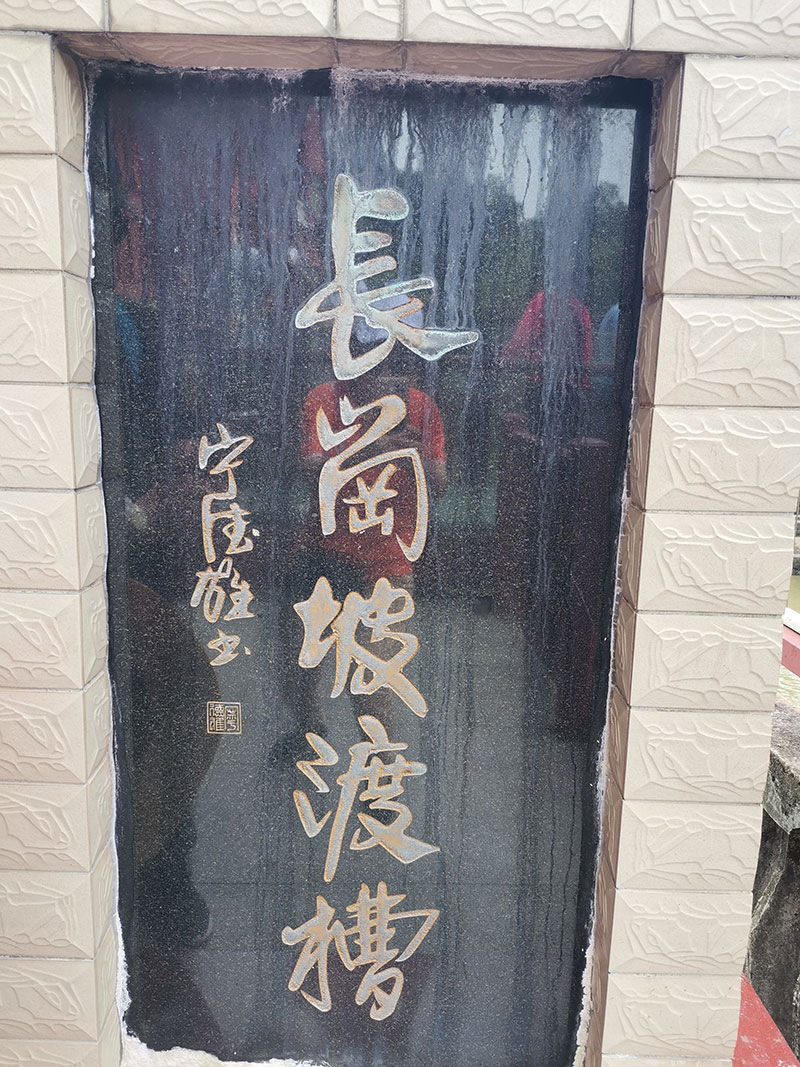 長崗坡渡槽
宁德雄书